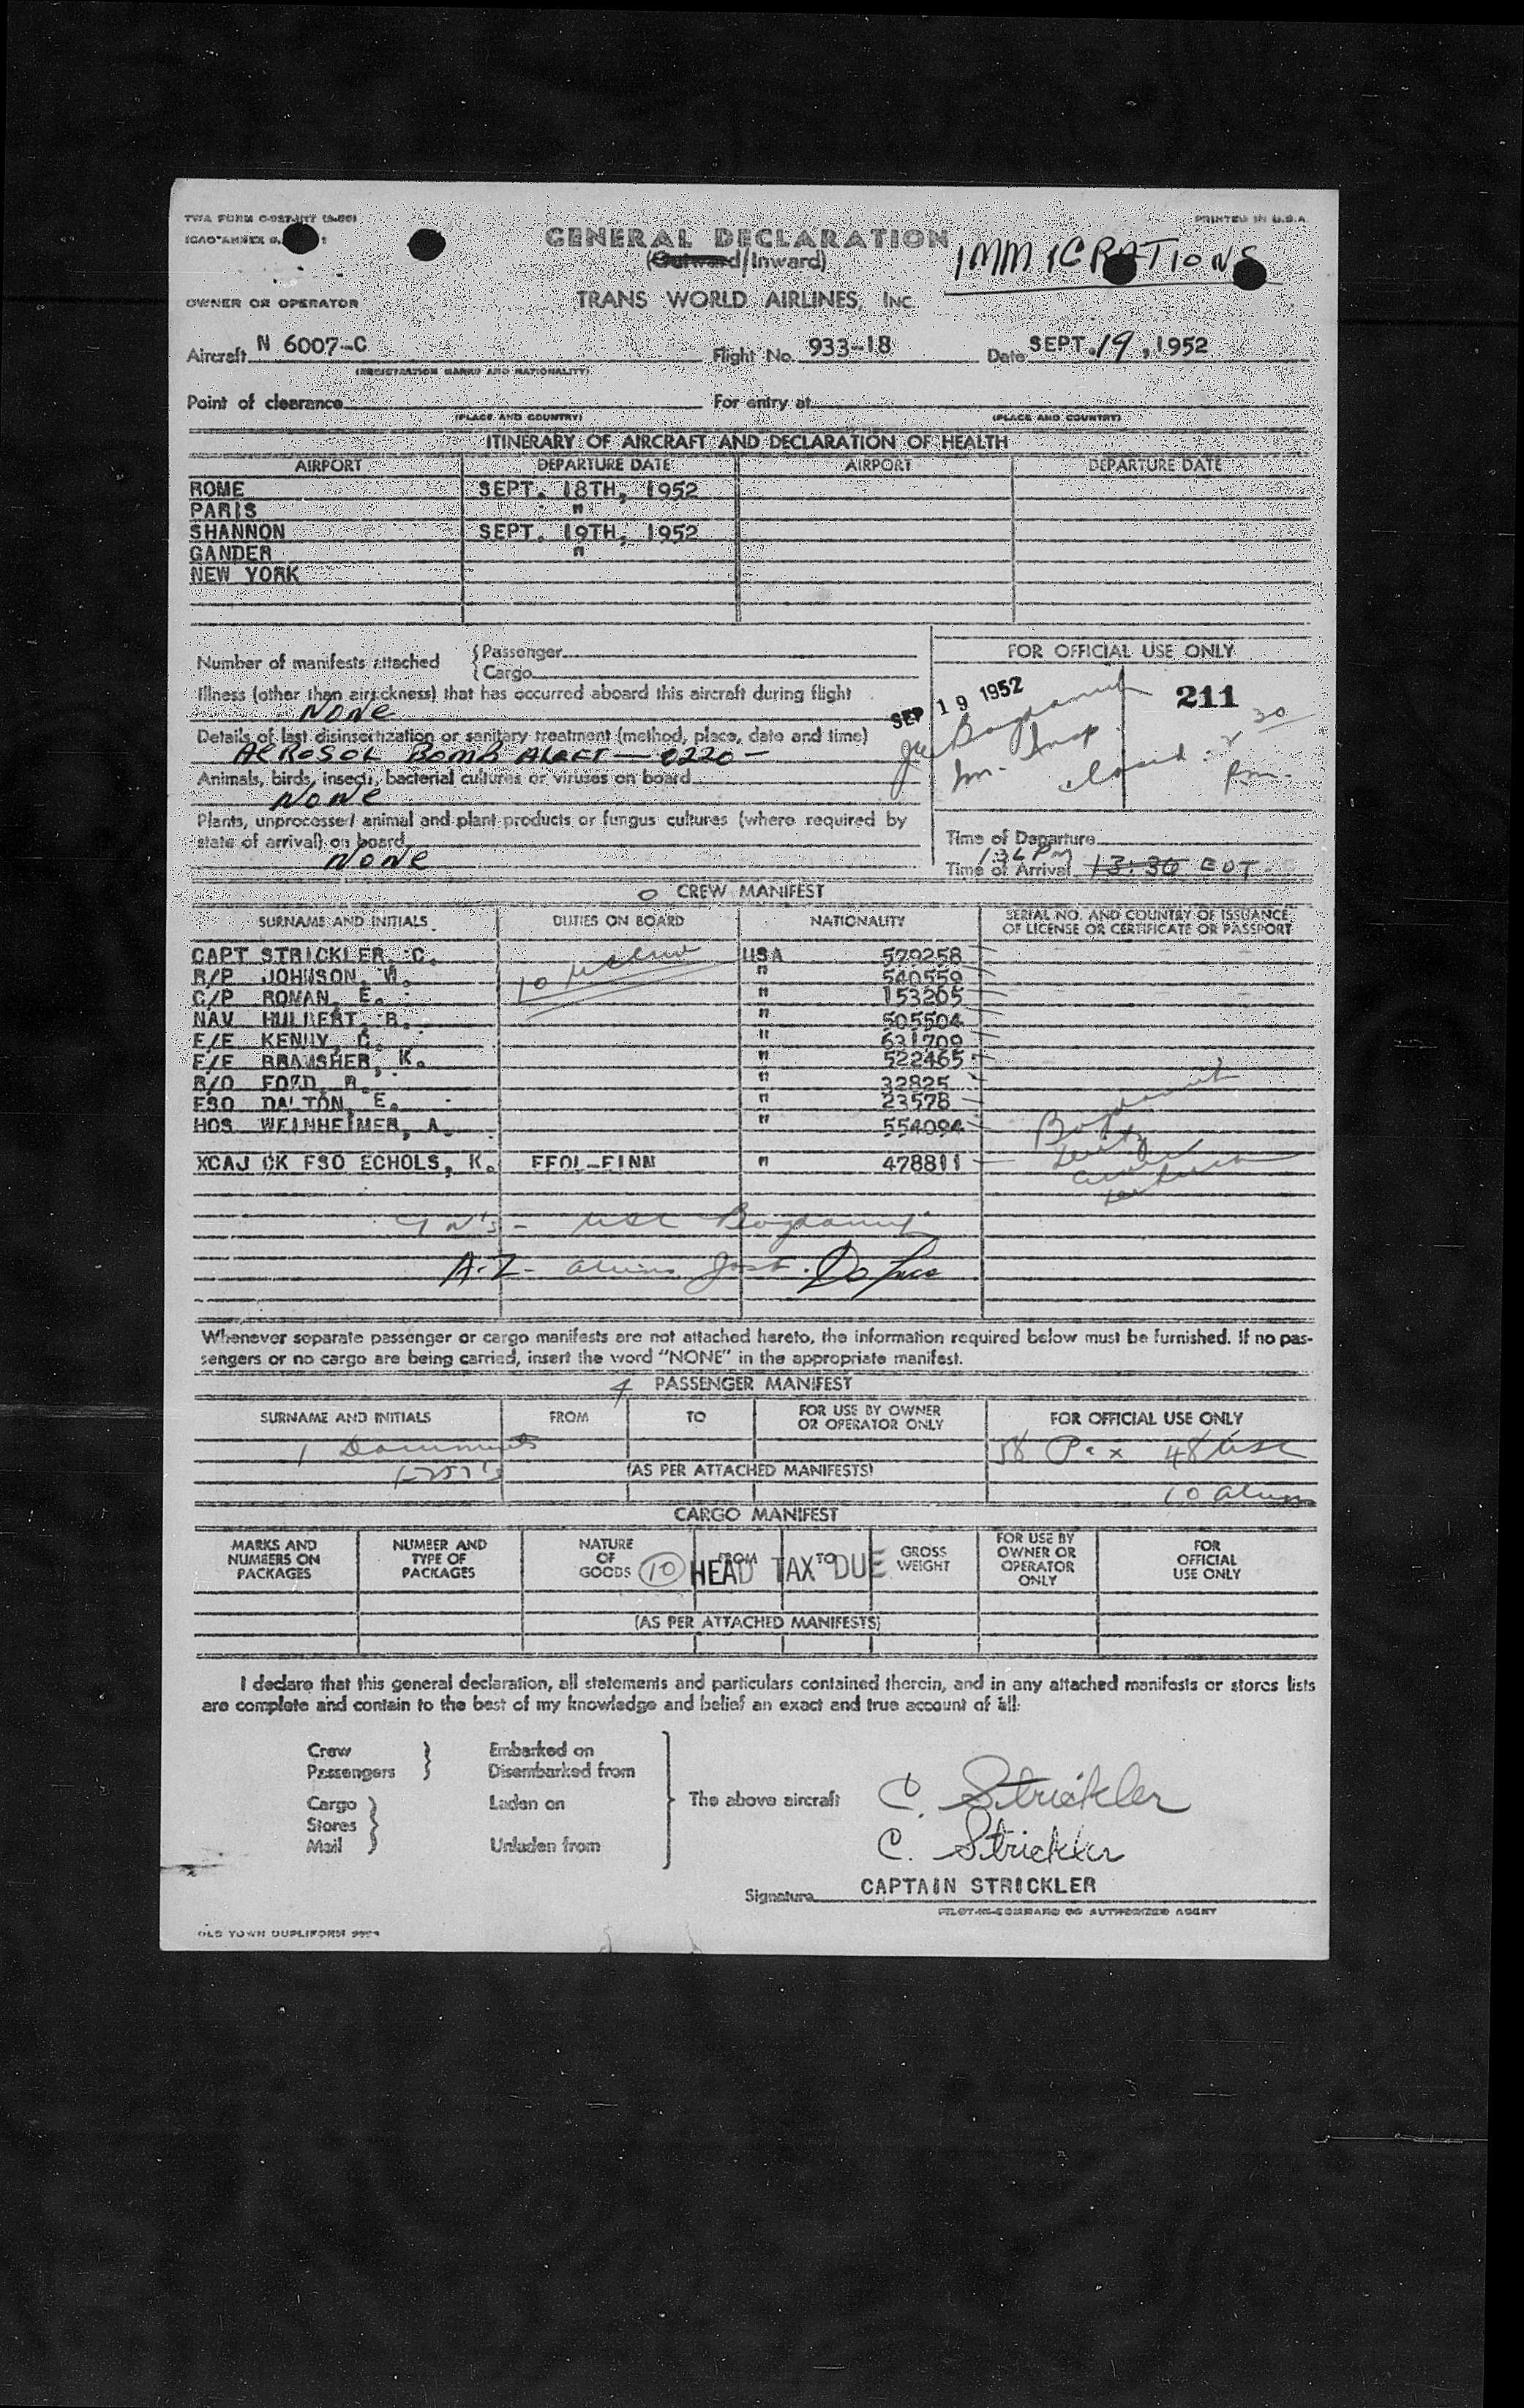 PRINTED IN U.S.A.
GENERAL DECLARATION
(Outward/Inward)
IMMIGRATIONS
OWNER OR OPERATOR
TRANS WORLD AIRLINES, INC.
Aircraft N 6007-C Flight No. 933-18 Date SEPT. 19, 1952
(REGISTRATION MARKS AND NATIONALITY)
Point of clearance For entry at
(PLACE AND COUNTRY) (PLACE AND COUNTRY)
ITINERARY OF AIRCRAFT AND DECLARATION OF HEALTH
AIRPORT DEPARTURE DATE AIRPORT DEPARTURE DATE
ROME SEPT. 18TH, 1952
PARIS "
SHANNON SEPT. 19TH, 1952
GANDER "
NEW YORK
Number of manifests attached { Passenger
{ Cargo
FOR OFFICIAL USE ONLY
Illness (other than airsickness) that has occurred aboard this aircraft during flight
NONE
SEP 19 1952
211
Details of last disinsectization or sanitary treatment (method, place, date and time)
AEROSOL BOMB ALOFT — 0220 —
Animals, birds, insects, bacterial cultures or viruses on board
NONE
Plants, unprocessed animal and plant products or fungus cultures (where required by
state of arrival) on board
NONE
closed 2 30 Pm.
Time of Departure
Time of Arrival 13:30 EDT
CREW MANIFEST
SURNAME AND INITIALS DUTIES ON BOARD NATIONALITY SERIAL NO. AND COUNTRY OF ISSUANCE
OF LICENSE OR CERTIFICATE OR PASSPORT
CAPT STRICKLER, C. USA 579258
R/P JOHNSON, W. " 540559
C/P ROMAN, E. " 153205
NAV HULBERT, B. " 505504
F/E KENNY, C. " 631709
F/E BRAMSHER, K. " 522465
R/O FORD, R. " 32825
FSO DALTON, E. " 23578
HOS WEINHEIMER, A. " 554094
XCAJ CK FSO ECHOLS, K. " 478811
Whenever separate passenger or cargo manifests are not attached hereto, the information required below must be furnished. If no pas-
sengers or no cargo are being carried, insert the word "NONE" in the appropriate manifest.
PASSENGER MANIFEST
SURNAME AND INITIALS FROM TO FOR USE BY OWNER
OR OPERATOR ONLY FOR OFFICIAL USE ONLY
1 Documents
58 Pax 48 USC
(AS PER ATTACHED MANIFESTS)
10 aliens
CARGO MANIFEST
MARKS AND
NUMBERS ON
PACKAGES
NUMBER AND
TYPE OF
PACKAGES
NATURE
OF
GOODS
FROM
TO
GROSS
WEIGHT
FOR USE BY
OWNER OR
OPERATOR
ONLY
FOR
OFFICIAL
USE ONLY
10 HEAD TAX DUE
(AS PER ATTACHED MANIFESTS)
I declare that this general declaration, all statements and particulars contained therein, and in any attached manifests or stores lists
are complete and contain to the best of my knowledge and belief an exact and true account of all:
Crew } Embarked on
Passengers } Disembarked from
Cargo } Laden on
Stores
Mail } Unladen from
The above aircraft
C. Strickler
C. Strickler
Signature CAPTAIN STRICKLER
PILOT-IN-COMMAND OR AUTHORIZED AGENT